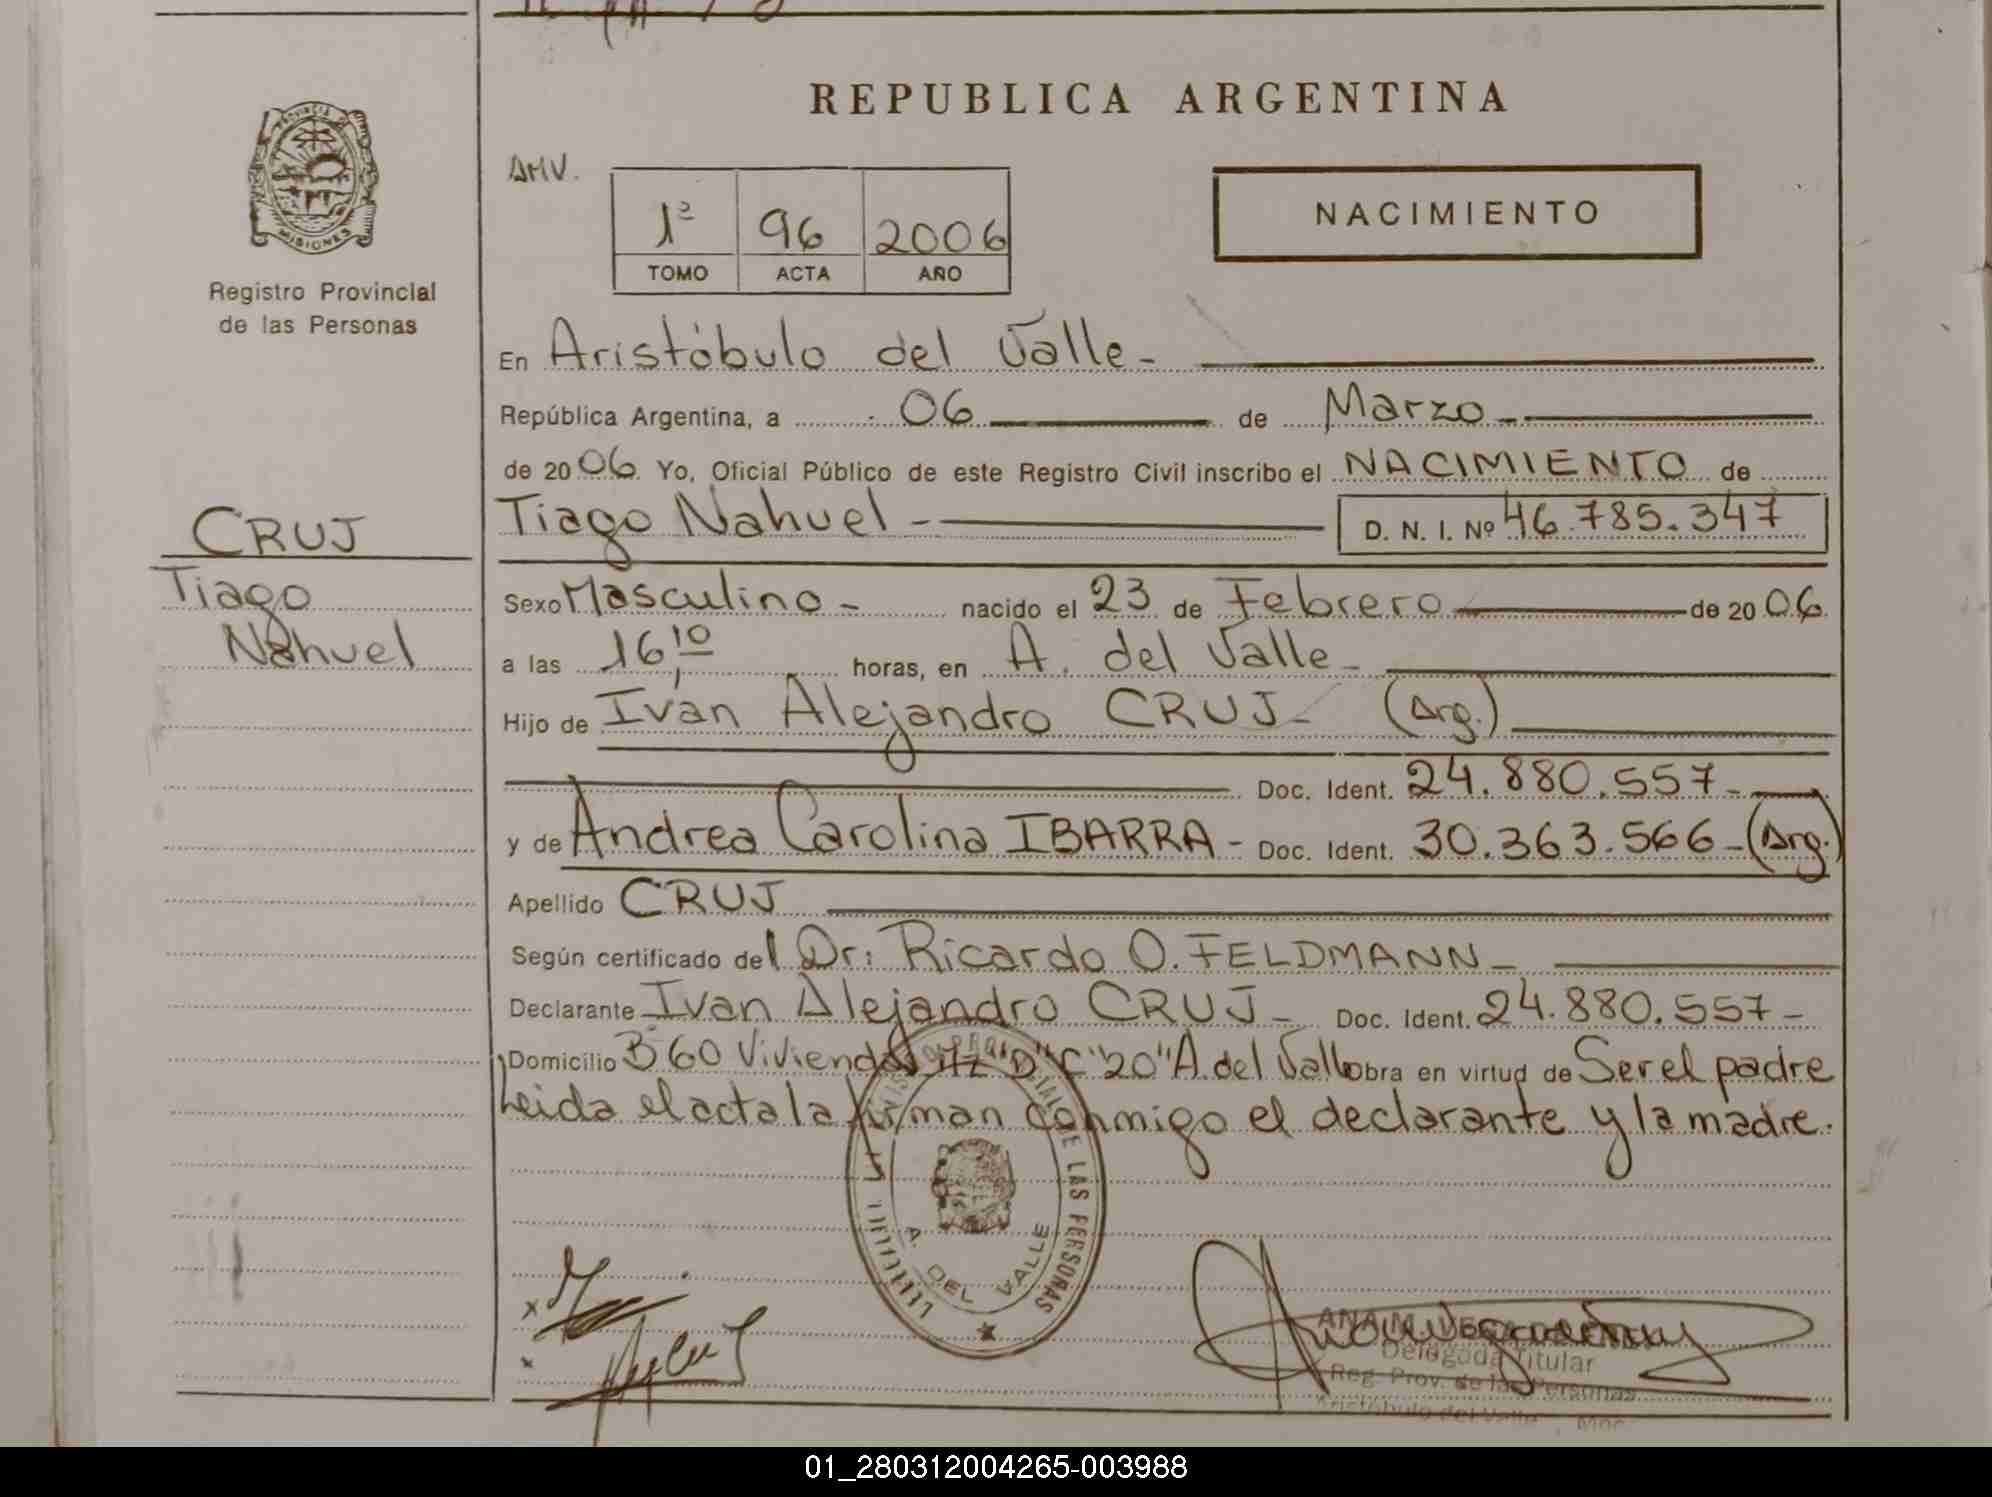 REPUBLICA ARGENTINA
PROVINCIA DE
MISIONES
Registro Provincial
de las Personas
AMV.
1º 96 2006
TOMO ACTA AÑO
NACIMIENTO
En Aristóbulo del Valle -
República Argentina, a 06 de Marzo -
de 2006. Yo, Oficial Público de este Registro Civil inscribo el NACIMIENTO de
CRUJ
Tiago
Nahuel
Tiago Nahuel - D. N. I. Nº 46.785.347
Sexo Masculino - nacido el 23 de Febrero de 2006.
a las 16,10 horas, en A. del Valle -
Hijo de Iván Alejandro CRUJ - (Arg.)
Doc. Ident. 24.880.557 -
y de Andrea Carolina IBARRA - Doc. Ident. 30.363.566 - (Arg.)
Apellido CRUJ
Según certificado del Dr: Ricardo O. FELDMANN -
Declarante Ivan Alejandro CRUJ - Doc. Ident. 24.880.557 -
Domicilio Bº 60 Viviendas Mz "D" C "20" A del Valle obra en virtud de Ser el padre
Leida el acta la firman conmigo el declarante y la madre.
DE LAS PERSONAS
A. DEL VALLE
Delegada Titular
Reg. Prov. de las Personas
Aristóbulo del Valle
01_280312004265-003988